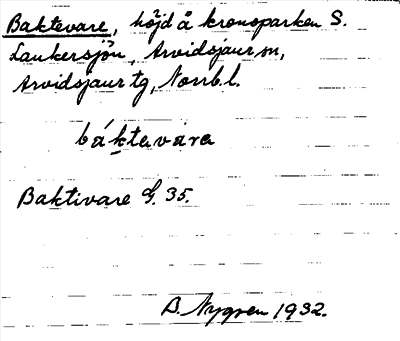 Baktevare, höjd å kronoparken S.
Laukersjön, Arvidsjaur sn,
Arvidsjaur tg, Norrb. l.
báktavāra
Baktivare G. 35.
B. Nygren 1932.